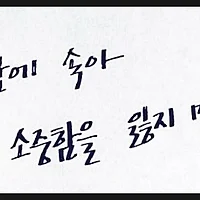 에 속아
소중함을 잃지